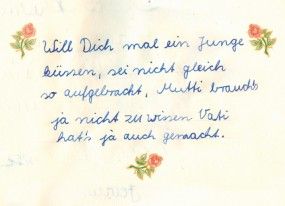 Will Dich mal ein Junge
küssen, sei nicht gleich
so aufgebracht, Mutti brauch's
ja nicht zu wissen Vati
hat's ja auch gemacht.